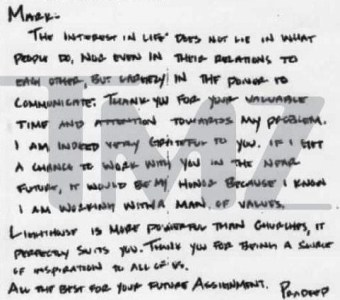 MARK:
THE INTEREST IN LIFE DOES NOT LIE IN WHAT
PEOPLE DO, NOR EVEN IN THEIR RELATIONS TO
EACH OTHER, BUT LARGELY IN THE POWER TO
COMMUNICATE. THANK YOU FOR YOUR VALUABLE
TIME AND ATTENTION TOWARDS MY PROBLEM.
I AM INDEED VERY GRATEFUL TO YOU. IF I GET
A CHANCE TO WORK WITH YOU IN THE NEAR
FUTURE, IT WOULD BE MY HONOR BECAUSE I KNOW
I AM WORKING WITH A MAN OF VALUES.
LIGHTHOUSE IS MORE POWERFUL THAN CHURCHES, IT
PERFECTLY SUITS YOU. THANK YOU FOR BEING A SOURCE
OF INSPIRATION TO ALL OF US.
ALL THE BEST FOR YOUR FUTURE ASSIGNMENT. PRADEEP
TMZ